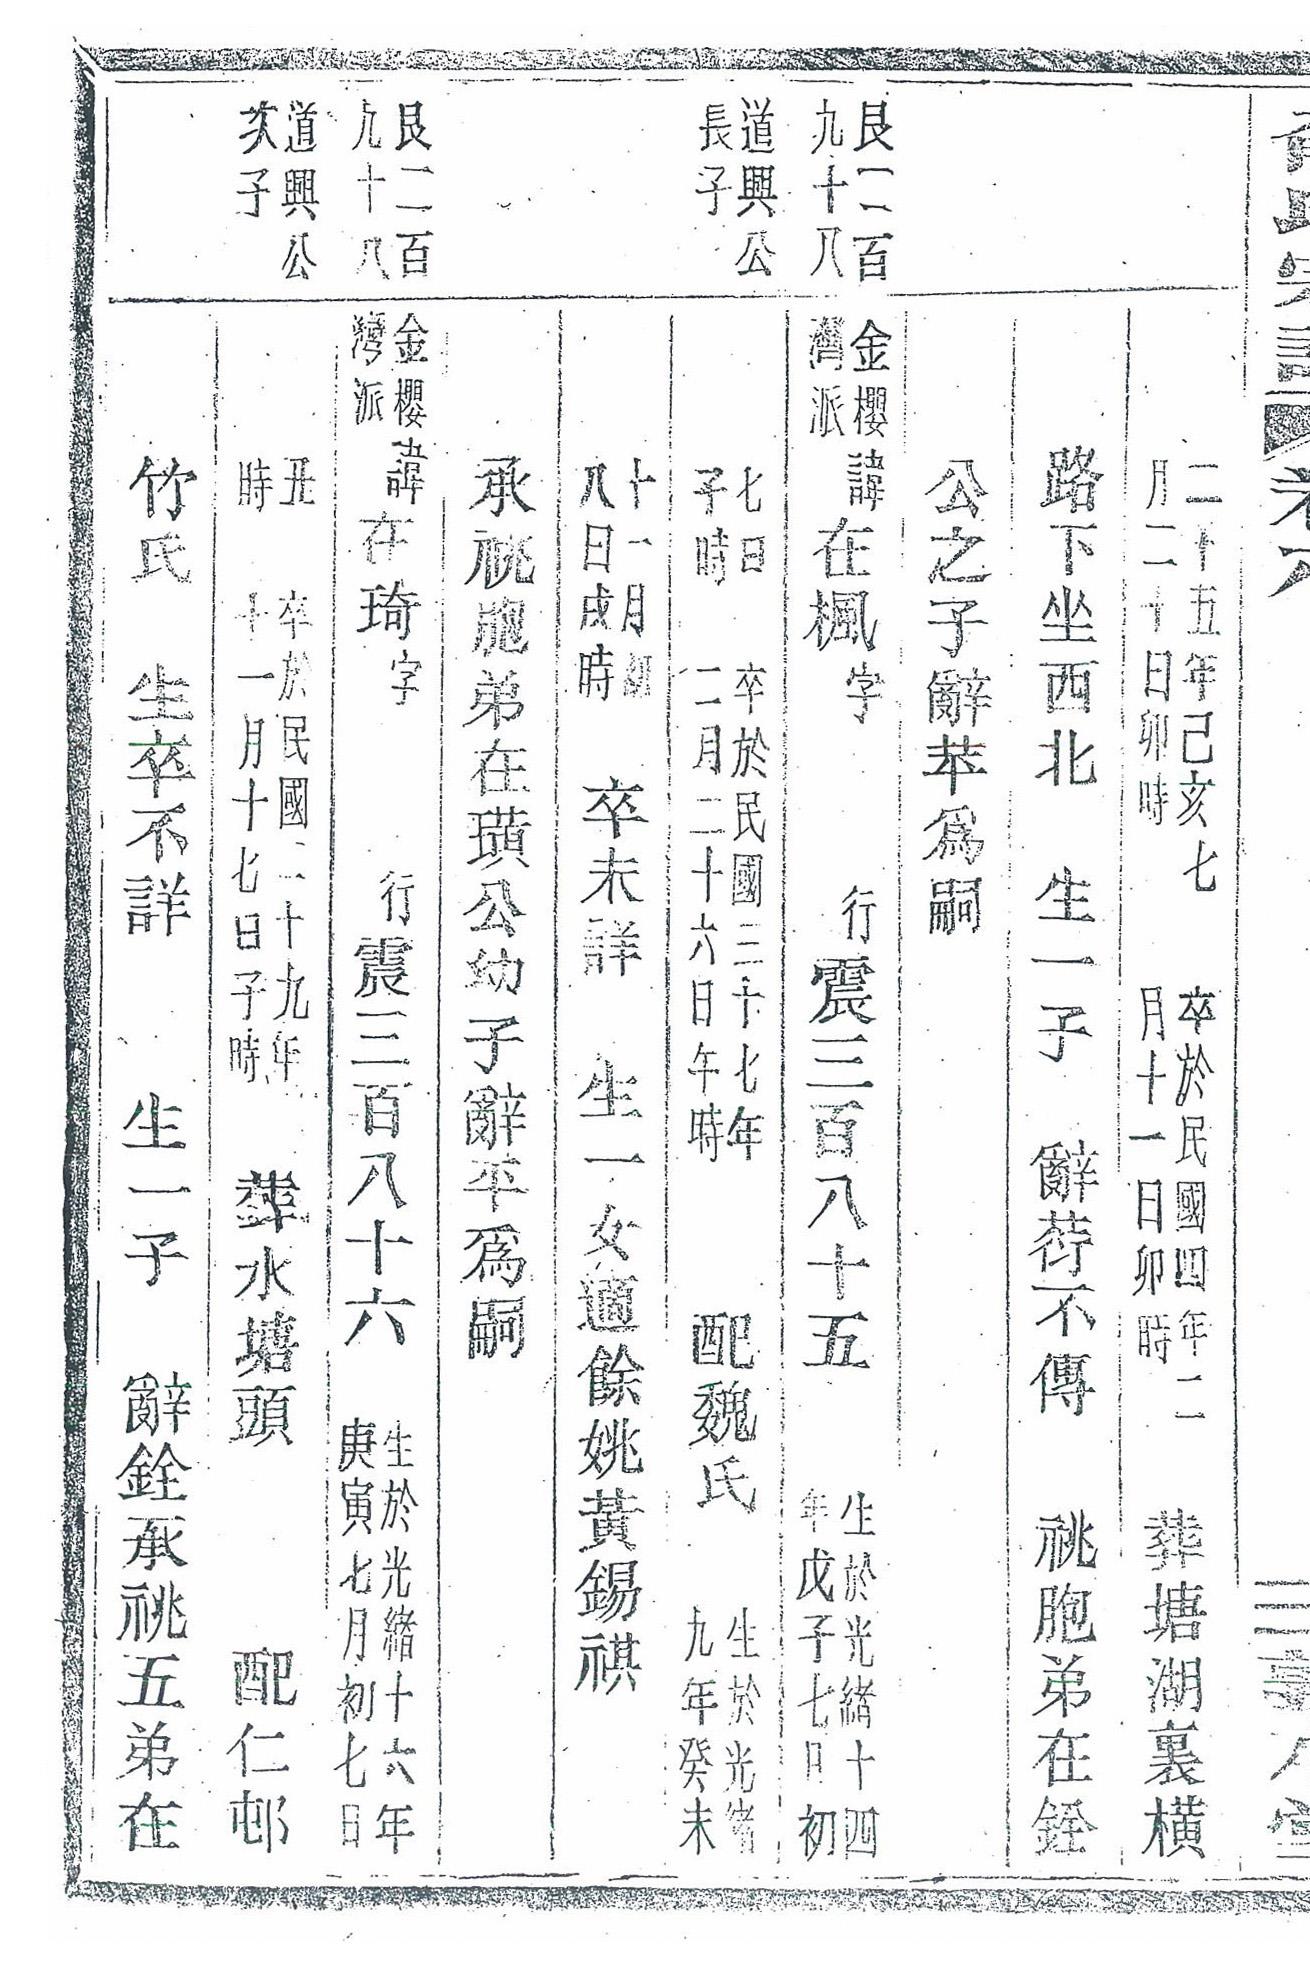 二十五年己亥七月二十日卯時 卒於民國四年二月十一日卯時 葬塘湖裏橫
路下坐西北 生一子 辭荇不傳 祧胞弟在銓
公之子辭苹為嗣
艮二百九十八 金櫻灣派 諱在楓 字 行震三百八十五 生於光緒十四年戊子七日初
道興公長子 七日子時 卒於民國三十七年二月二十六日午時 配魏氏 生於光緒九年癸未
十一月初八日戌時 卒未詳 生一女適餘姚黃錫祺
承祧胞弟在璜公幼子辭平為嗣
艮二百九十八 金櫻灣派 諱在琦 字 行震三百八十六 生於光緒十六年庚寅七月初七日
道興公次子 丑時 卒於民國二十九年十一月十七日子時 葬水塘頭 配仁邨
竹氏 生卒不詳 生一子 辭銓承祧五弟在